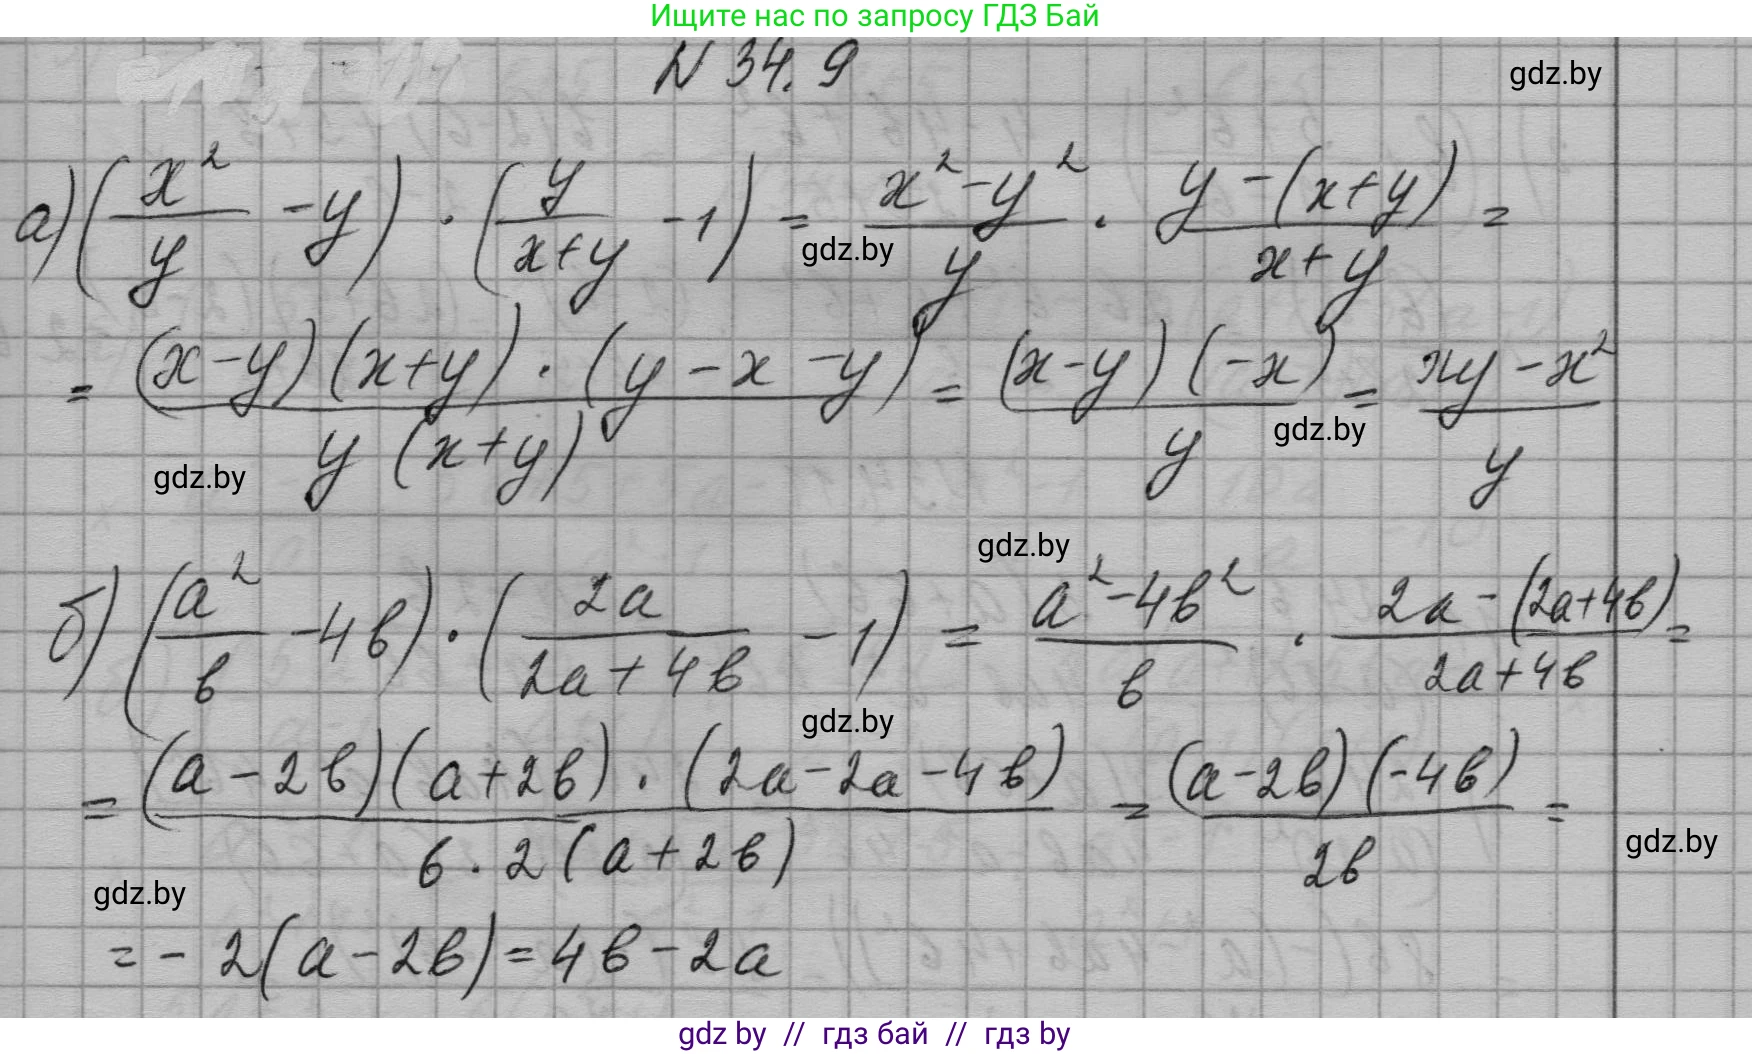 Ищите нас по запросу ГДЗ Бай
N 34.9
gdz.by
а) (x²/y - y) · (y/(x+y) - 1) = (x²-y²)/y · (y-(x+y))/(x+y) =
gdz.by
= ((x-y)(x+y)·(y-x-y))/(y(x+y)) = ((x-y)(-x))/y = (xy-x²)/y
gdz.by
gdz.by
gdz.by
б) (a²/в - 4в) · (2a/(2a+4в) - 1) = (a²-4в²)/в · (2a-(2a+4в))/(2a+4в) =
gdz.by
= ((a-2в)(a+2в)·(2a-2a-4в))/(в·2(a+2в)) = ((a-2в)(-4в))/2в =
gdz.by
gdz.by
= -2(a-2в) = 4в-2a
gdz by // гдз бай // гдз by